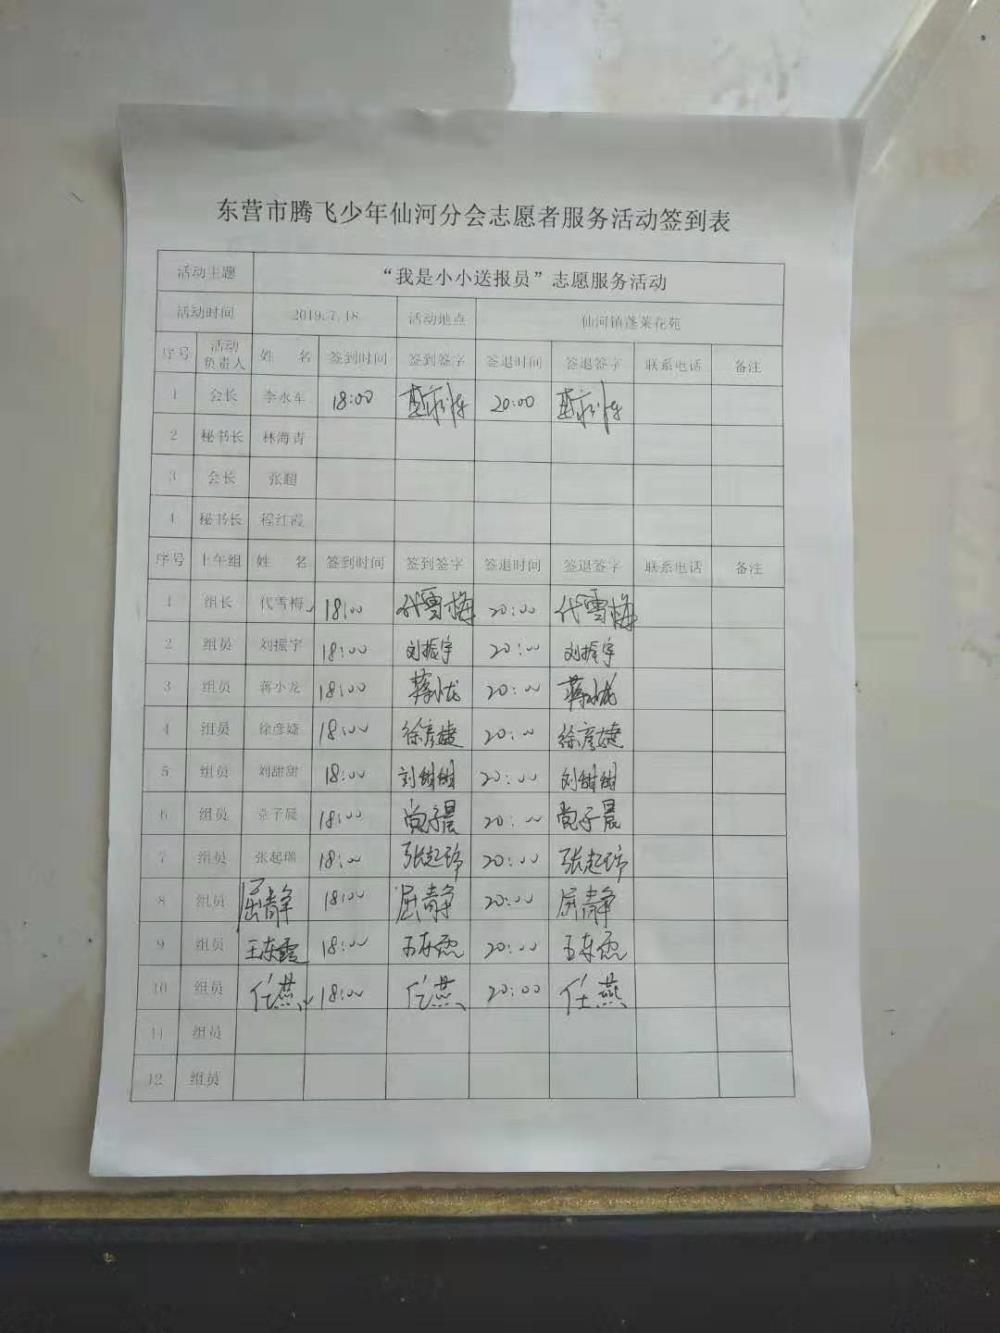 东营市腾飞少年仙河分会志愿者服务活动签到表
活动主题 “我是小小送报员”志愿服务活动
活动时间 2019.7.18 活动地点 仙河镇蓬莱花苑
序号 活动负责人 姓 名 签到时间 签到签字 签退时间 签退签字 联系电话 备注
1 会长 李永军 18:00 20:00
2 秘书长 林海青
3 会长 张超
4 秘书长 程红霞
序号 上午组 姓 名 签到时间 签到签字 签退时间 签退签字 联系电话 备注
1 组长 代雪梅 18:00 代雪梅 20:00 代雪梅
2 组员 刘振宇 18:00 刘振宇 20:00 刘振宇
3 组员 蒋小龙 18:00 蒋小龙 20:00 蒋小龙
4 组员 徐彦婕 18:00 徐彦婕 20:00 徐彦婕
5 组员 刘甜甜 18:00 刘甜甜 20:00 刘甜甜
6 组员 18:00 20:00
7 组员 张起瑞 18:00 张起瑞 20:00 张起瑞
8 组员 屈静 18:00 屈静 20:00 屈静
9 组员 王东霞 18:00 王东霞 20:00 王东霞
10 组员 任燕 18:00 任燕 20:00 任燕
11 组员
12 组员